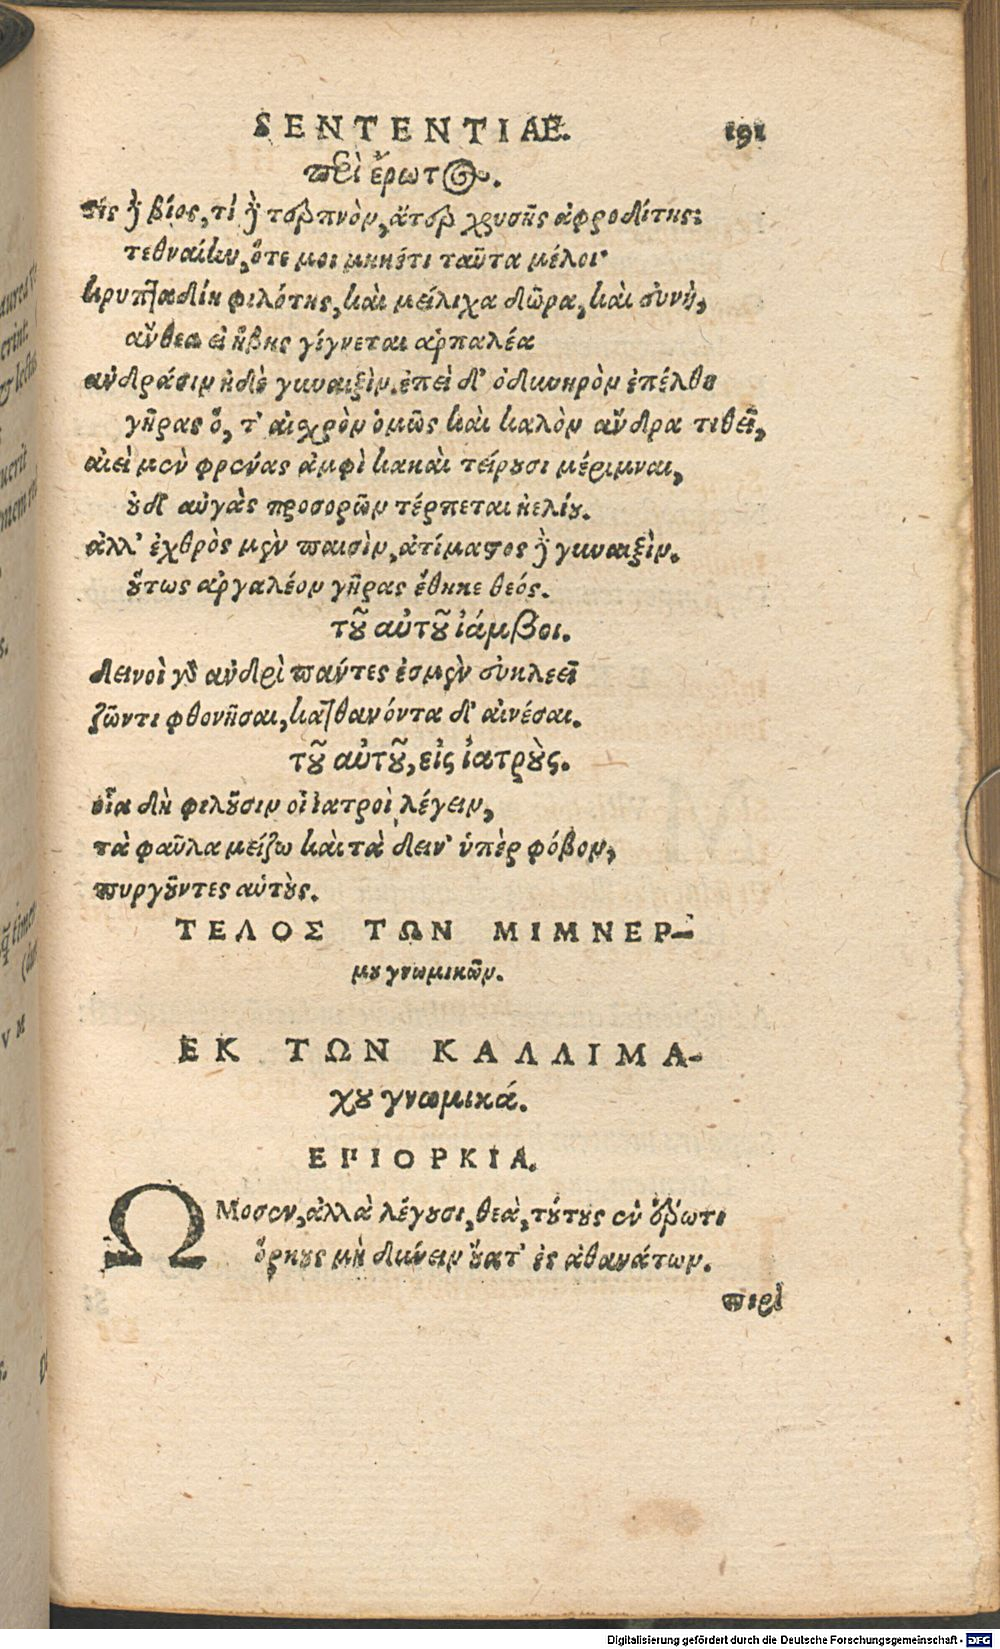 SENTENTIAE. 191
περὶ ἔρωτος.
τίς δὲ βίος, τί δὲ τερπνὸν, ἄτερ χρυσῆς ἀφροδίτης;
τεθναίην, ὅτε μοι μηκέτι ταῦτα μέλοι·
κρυπταδίη φιλότης, καὶ μείλιχα δῶρα, καὶ εὐνὴ,
ἄνθεα εἰ ἥβης γίγνεται ἁρπαλέα
ἀνδράσιν ἠδὲ γυναιξὶν. ἐπεὶ δ' ὀδυνηρὸν ἐπέλθῃ
γῆρας ὅ, τ' αἰσχρὸν ὁμῶς καὶ καλὸν ἄνδρα τιθεῖ,
αἰεὶ μὲν φρένας ἀμφὶ κακαὶ τείρουσι μέριμναι,
οὐδ' αὐγὰς προσορῶν τέρπεται ἠελίου.
ἀλλ' ἐχθρὸς μὲν παισὶν, ἀτίμαστος δὲ γυναιξὶν.
οὕτως ἀργαλέον γῆρας ἔθηκε θεός.
τοῦ αὐτοῦ ἰάμβοι.
δεινοὶ γὰρ ἀνδρὶ πάντες ἐσμὲν εὐκλεεῖ
ζῶντι φθονῆσαι, κατθανόντα δ' αἰνέσαι.
τοῦ αὐτοῦ, εἰς ἰατροὺς.
οἷα δὴ φιλοῦσιν οἱ ἰατροὶ λέγειν,
τὰ φαῦλα μείζω καὶ τὰ δειν' ὑπὲρ φόβον,
πυργοῦντες αὑτοὺς.
ΤΕΛΟΣ ΤΩΝ ΜΙΜΝΕΡ-
μου γνωμικῶν.
ΕΚ ΤΩΝ ΚΑΛΛΙΜΑ-
χου γνωμικά.
ΕΠΙΟΡΚΙΑ.
ΩΜοσεν, ἀλλὰ λέγουσι, θεὰ, τούτους ἐν ἔρωτι
ὅρκους μὴ δύνειν οὔατ' ἐς ἀθανάτων.
περὶ
Digitalisierung gefördert durch die Deutsche Forschungsgemeinschaft - DFG